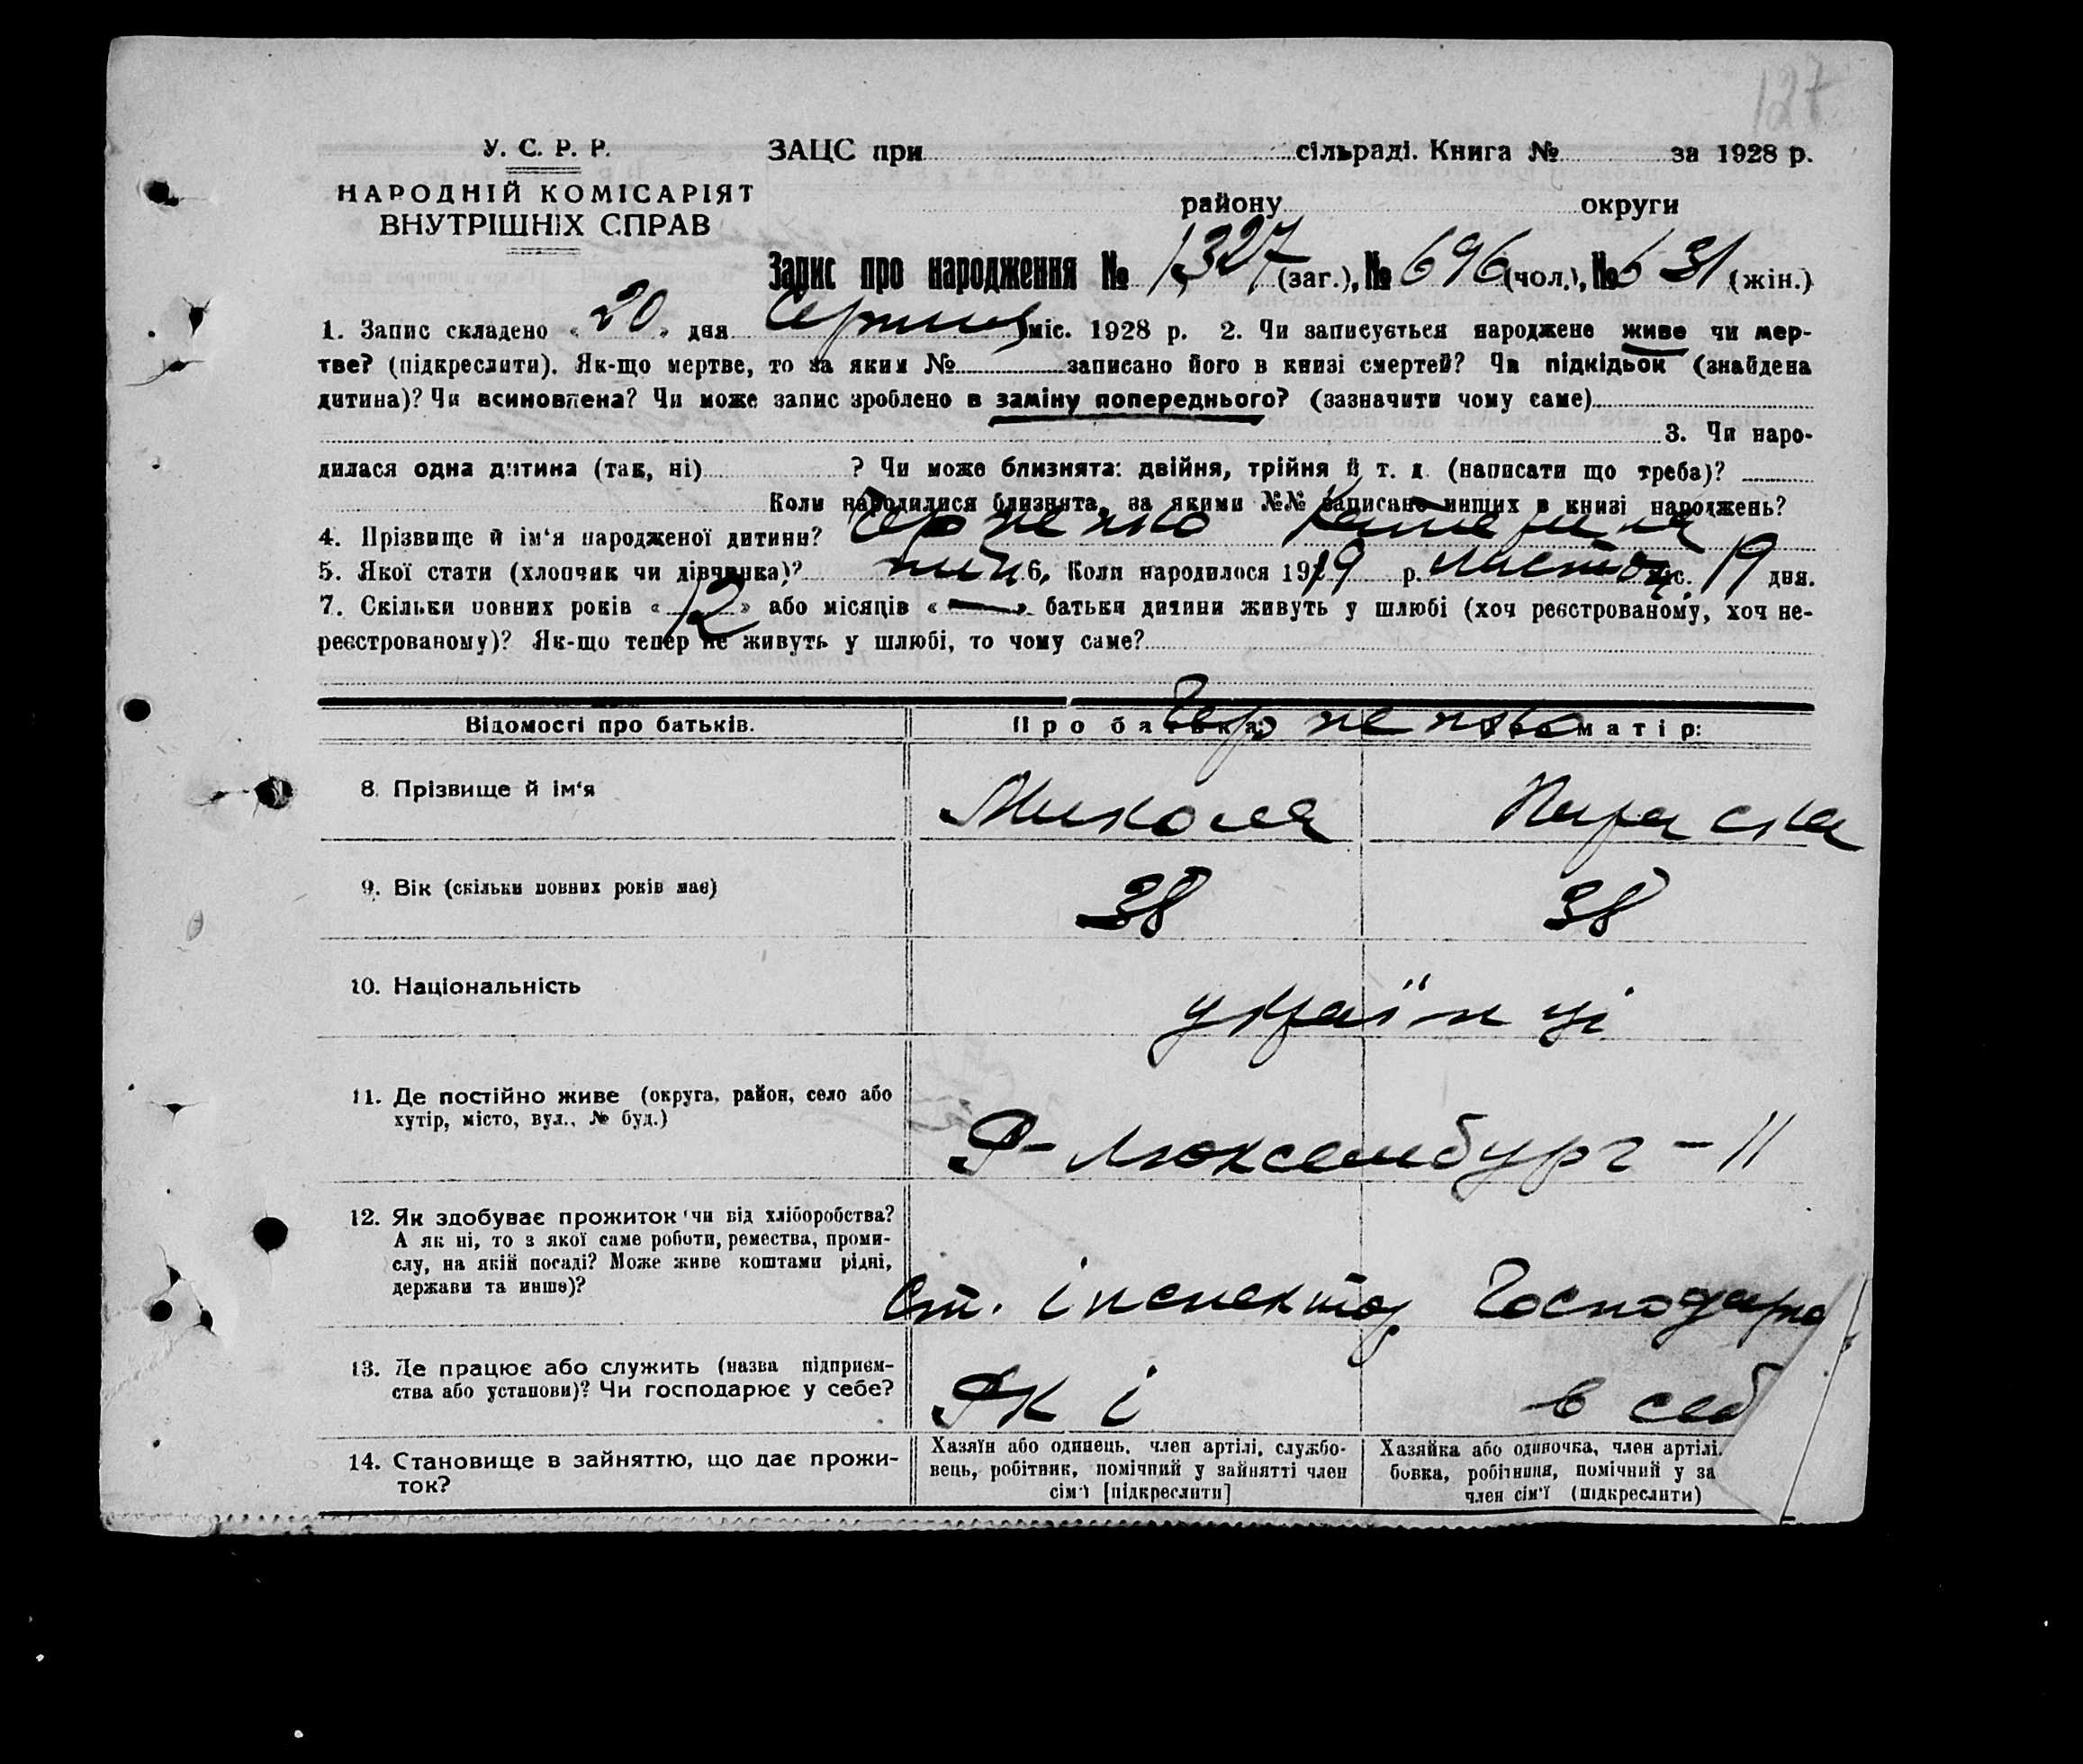 127
У. С. Р. Р.
НАРОДНІЙ КОМІСАРІЯТ
ВНУТРІШНІХ СПРАВ
ЗАЦС при сільраді. Книга № за 1928 р.
району округи
Запис про народження № 1327 (заг.), № 696 (чол.), № 631 (жін.)
1. Запис складено « 20 » дня Серпня міс. 1928 р. 2. Чи записується народжене живе чи мер-
тве? (підкреслити). Як-що мертве, то за яким № записано його в книзі смертей? Чи підкідьок (знайдена
дитина)? Чи всиновлена? Чи може запис зроблено в заміну попереднього? (зазначити чому саме)
3. Чи наро-
дилася одна дитина (так, ні) ? Чи може близнята: двійня, трійня й т. д. (написати що треба)?
Коли народилися близнята, за якими №№ записано инших в книзі народжень?
4. Прізвище й ім‘я народженої дитини? Катерина
5. Якої стати (хлопчик чи дівчинка)? 6. Коли народилося 1919 р. листоп міс. 19 дня.
7. Скільки повних років « 12 » або місяців « — » батьки дитини живуть у шлюбі (хоч реєстрованому, хоч не-
реєстрованому)? Як-що тепер не живуть у шлюбі, то чому саме?
Відомості про батьків. Про батька: Про матір:
8. Прізвище й ім‘я Микола Параска
9. Вік (скільки повних років має) 38 38
10. Національність українці
11. Де постійно живе (округа, район, село або
хутір, місто, вул., № буд.)
Р-Люксембург – 11
12. Як здобуває прожиток чи від хліборобства?
А як ні, то з якої саме роботи, ремества, проми-
слу, на якій посаді? Може живе коштами рідні,
держави та инше)?
Ст. інспектор Господар
13. Де працює або служить (назва підприєм-
ства або установи)? Чи господарює у себе?
РКІ в себ
14. Становище в зайняттю, що дає прожи-
ток?
Хазяїн або одинець, член артілі, службо-
вець, робітник, помічний у зайнятті член
сім‘ї [підкреслити]
Хазяйка або одиночка, член артілі,
бовка, робітниця, помічний у за
член сім‘ї (підкреслити)